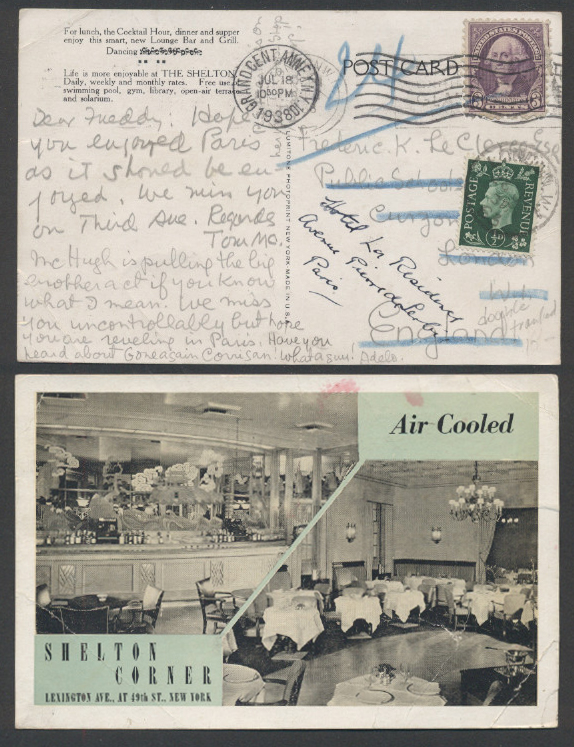 For lunch, the Cocktail Hour, dinner and supper
enjoy this smart, new Lounge Bar and Grill.
Dancing
Life is more enjoyable at THE SHELTON.
Daily, weekly and monthly rates. Free use of
swimming pool, gym, library, open-air terrace
and solarium.
POST CARD
GRAND CENT. ANNEX N.Y.
JUL 18
1030PM
1938
Dear Freddy: Hope
you enjoyed Paris
as it should be en
joyed. We miss you
on Third Ave. Regards
Tom Mc.
McHugh is pulling the big
brother act if you know
what I mean. We miss
you uncontrollably but hope
you are reveling in Paris. Have you
heard about Corrigan. What a guy. Adele.
LUMITONE PHOTOPRINT NEW YORK MADE IN U.S.A.
Frederic K. Le Clerq Esq
Public Schools
Curzon
London
W1
England
Hotel La Résidence
Avenue Pierre
Paris
double
POSTAGE
REVENUE
½D
3
Air Cooled
SHELTON
CORNER
LEXINGTON AVE., AT 49th ST., NEW YORK